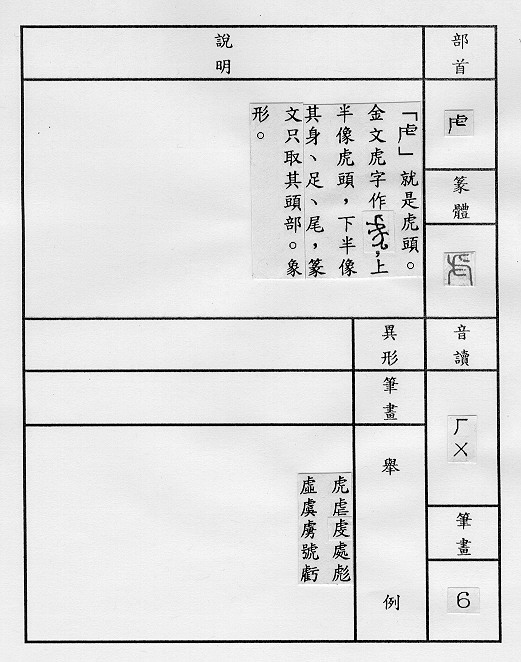 部首
虍
篆體
音讀
ㄏㄨ
筆畫
6
說明
「虍」就是虎頭。
金文虎字作，上
半像虎頭，下半像
其身、足、尾，篆
文只取其頭部。象
形。
異形
筆畫
舉例
虎虐虔處彪
虛虞虜號虧